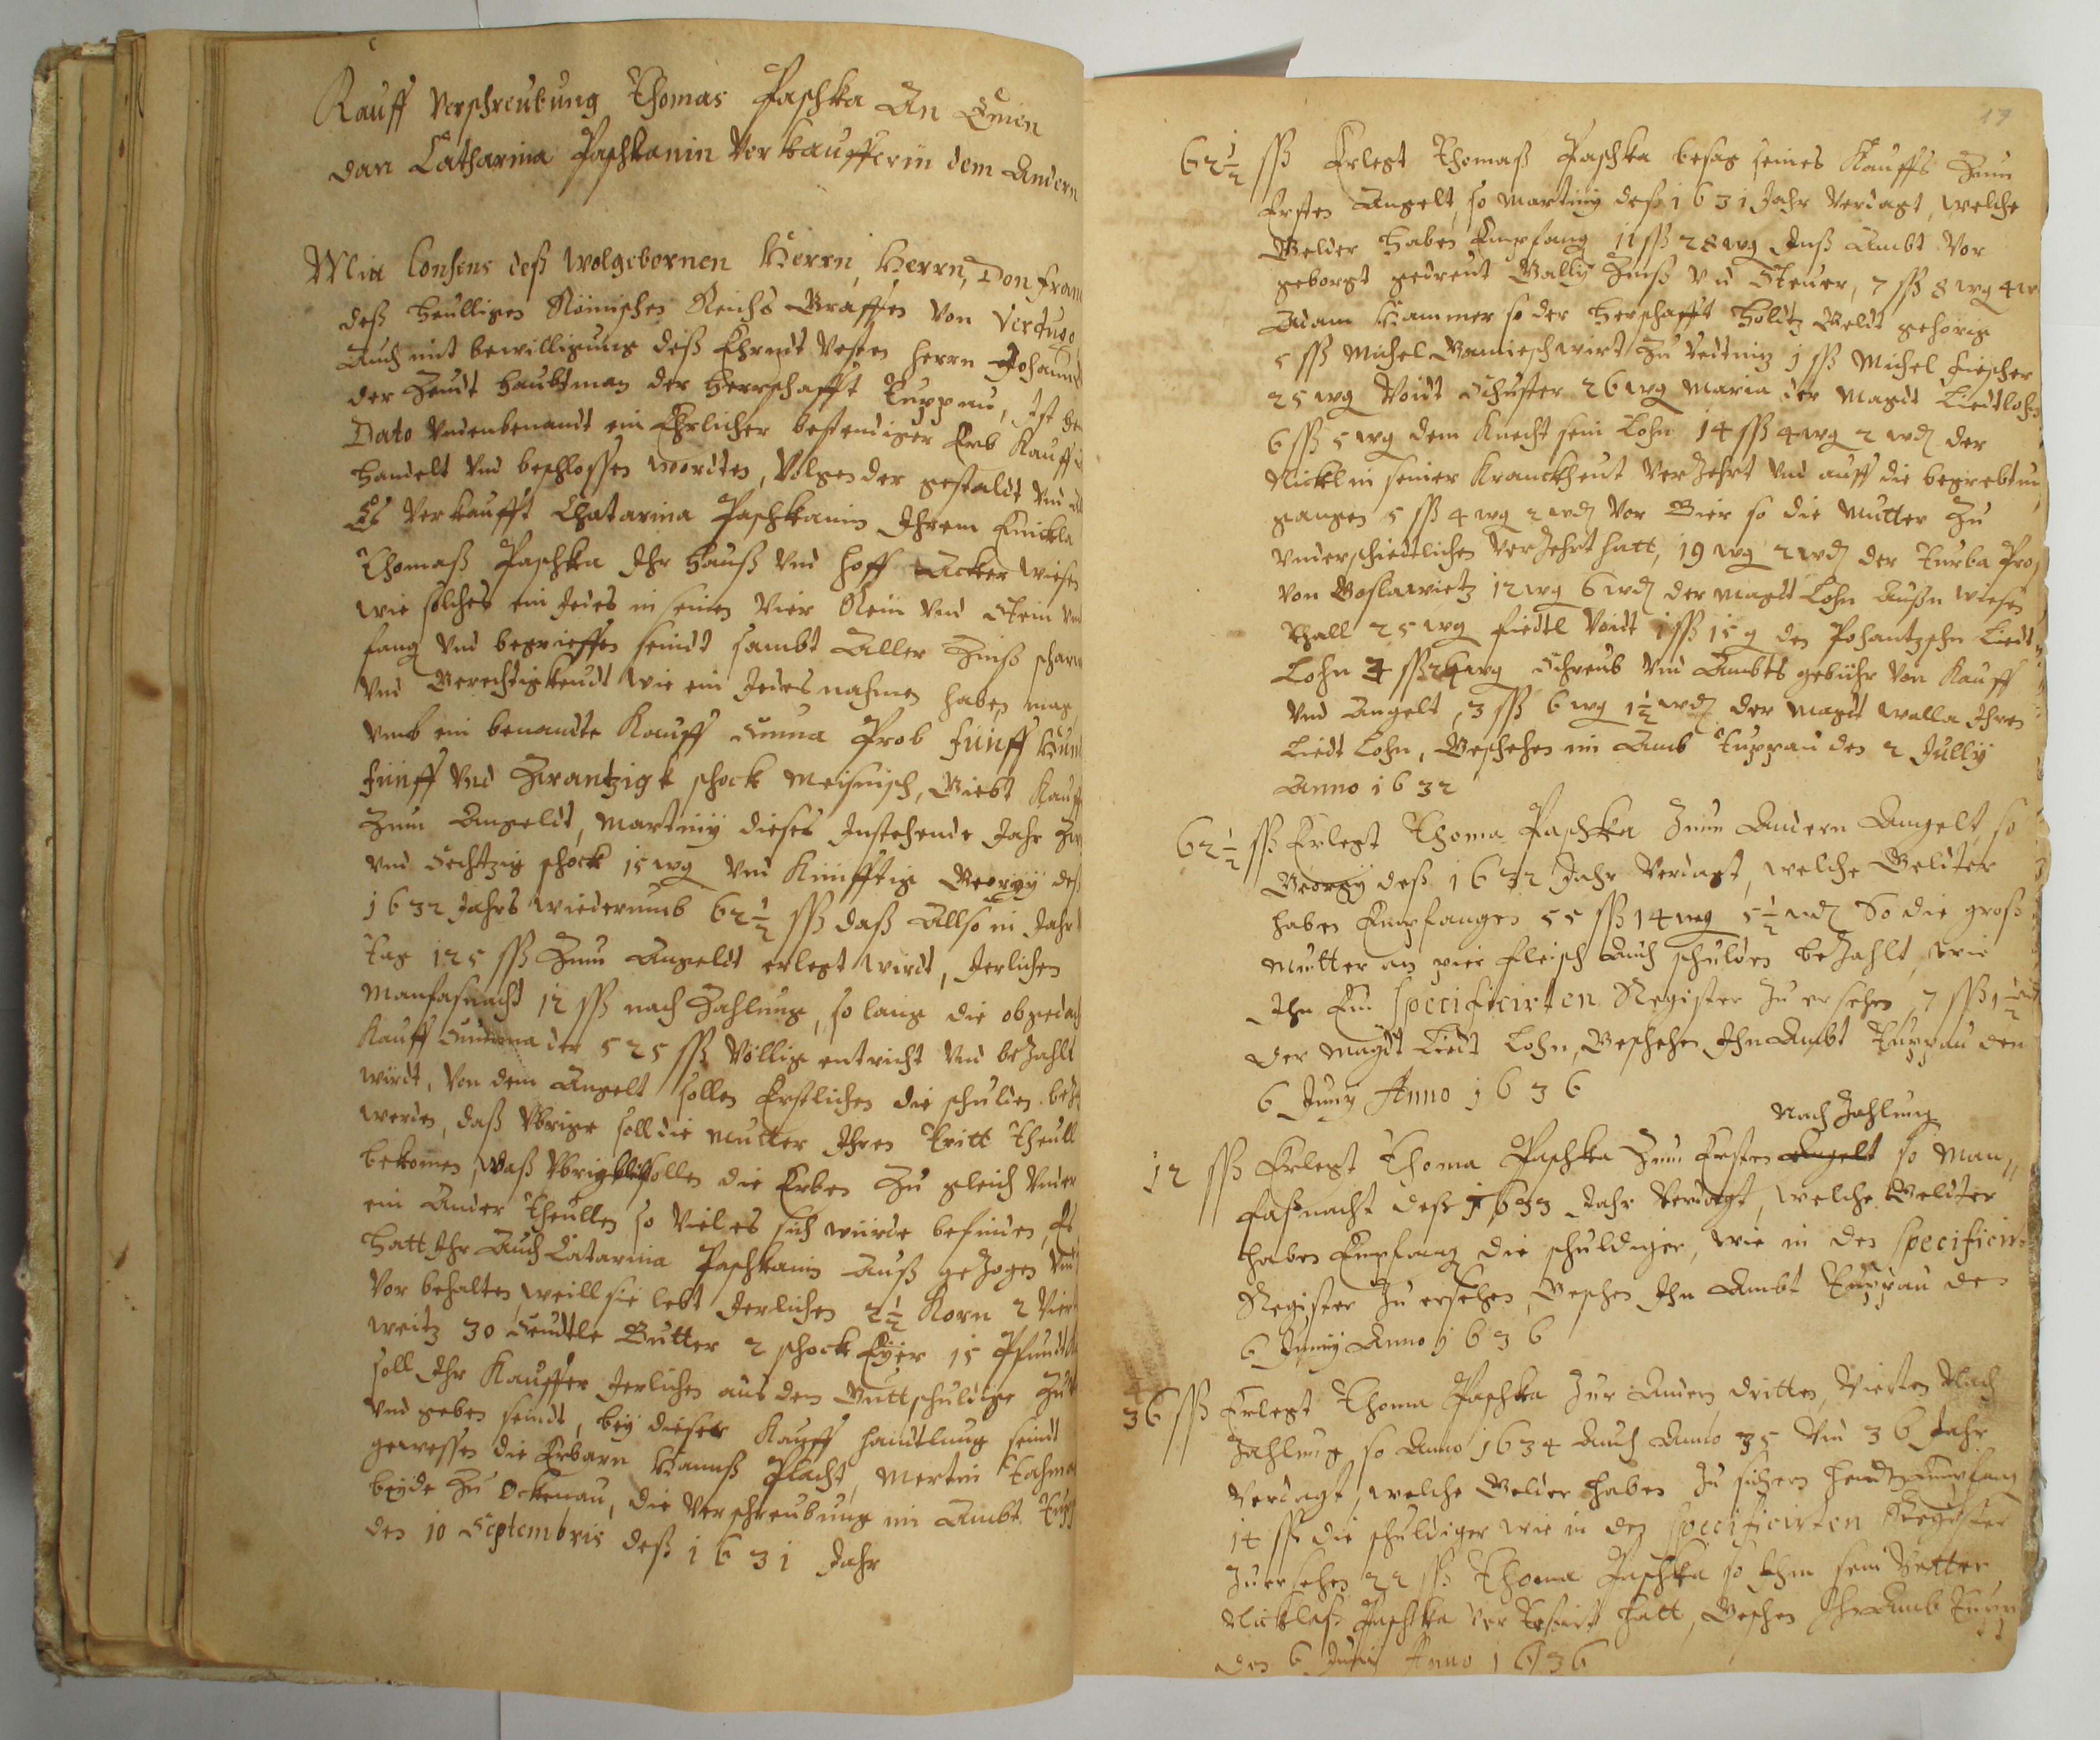 Kauff Verschreubung Thomas Paschka An Einen
dan Catharina Paschkanin Verkaufferin dem Andern
Mitt Consens deß Wolgebornen Herrn, Herrn, Don Fran
deß Heulligen Römischen Reichs Graffen Von Verdugo
Auch mit bewilligung deß Ehrndt Vesten Herrn Johann
der Zeudt Haubtman der Herrschafft Tuppau, Ist
Dato Vndenbenandt ein Ehrlicher bestendiger Erb Kauff
handelt Vnd beschlossen wordten, Volgender gestaldt Vnd
Es Verkaufft Chatarina Paschkanin Ihrem Enickla
Thomaß Paschka Ihr Hauß Vnd Hoff Acker Wiesen
wie solches ein Jedes in seinen Vier Rein Vnd Stein
fang Vnd begrieffen seindt sambt Aller Zinß
Vnd Gerechtigkeudt wie ein Jedes nahmen haben mag,
Vmb ein benandte Kauff Suma Prob Fünff Hun
Fünff Vnd Zwantzigk schock Meisnisch, Giebt Kauff
Zum Angeldt, Martiny dieses Instehende Jahr
Vnd Sechtzig schock 15 wg Vnd Künfftig Georgy deß
1632 Jahrs wiederumb 62½ ßß daß Allso in Jahr
tag 125 ßß Zum Angeldt erlegt wirdt, Jerlichen
Manfasnacht 12 ßß nach Zahlung, so lang die obgedach
Kauff Summa der 525 ßß Völlig entricht Vnd bezahlt
wirdt, Von dem Angelt sollen Erstlichen die schulden
werden, daß Vbrige soll die Mutter Ihren Tritt Theull
bekomen, Waß Vbrig sollen die Erben Zu gleich Vnder
ein Ander Theullen so Viel es sich würde befinden, Es
Hatt Ihr Auch Catarina Paschkanin Auß gezogen Vnd
Vor behalten, weill sie lebt Jerlichen 2½ Korn 2 Vier
weitz 30 Seudtle Butter 2 schock Eyer 15 Pfundt
soll Ihr Kauffer Jerlichen aus dem Gutt schuldig
Vnd geben seindt, bey dieser Kauff handtlung seindt
gewessen die Erbarn Hannß Placht, Mertin
beyde Zu Ockenau, die Verschreubung im Ambt Tupp
den 10 Septembris deß 1631 Jahr
17
62½ ßß Erlegt Thomaß Paschka besag seines Kauffs Zum
Ersten Angelt, so Martiny deß 1631 Jahr Verdagt, welche
Gelder haben Empfang 11 ßß 28 wg Inß Ambt Vor
geborgt gedreut Zinß Vnd Steuer, 7 ßß 8 wg 4
Adam Hammer so der Herschafft Holtz Geldt gehörig
5 ßß Michel wirt Zu 1 ßß Michel Fiescher
25 wg Voidt Schuster 26 wg Maria der Magdt Liedtlohn
6 ßß 5 wg dem Knecht sein Lohn 14 ßß 4 wg 2 wd der
Nickl in seiner Kranckheut Verzehrt Vnd auff die begrebtnu
gangen 5 ßß 4 wg 2 wd Vor Bier so die Mutter Zu
Vnderschiedtlichen Verzehrt hatt, 19 wg 2 wd der
Von 12 wg 6 wd der Magdt Lohn
25 wg Fiedtl Voidt 1 ßß 15 g den Liedt
Lohn 4 ßß 24 wg Schreub Vnd Ambts gebühr Von Kauff
Vnd Angelt, 3 ßß 6 wg 1½ wd der Magdt Walla Ihren
Liedt Lohn, Geschehen im Amb Tuppau den 2 Jully
Anno 1632
62½ ßß Erlegt Thoma Paschka Zum Andern Angelt, so
Georgy deß 1632 Jahr Verdagt, welche Geldter
haben Empfangen 55 ßß 14 wg 5½ wd So die groß
Mutter an pier Fleisch Auch schulden bezahlt, wie
Ihn Ein specificirten Register Zu ersehen, 7 ßß 1½ wd
der Magdt Liedt Lohn, Geschehen Ihn Ambt Tuppau den
6 Juny Anno 1636
Nach Zahlung
12 ßß Erlegt Thoma Paschka Zum Ersten Angelt so Man
faßnacht deß 1633 Jahr Verdagt, welche Geldter
haben Empfang die schuldiger, wie in den specificir
Register Zu ersehen, Geschen Ihn Ambt Tuppau den
6 Juny Anno 1636
36 ßß Erlegt Thoma Paschka Zur Andern dritten, Vierten Nach
Zahlung so Anno 1634 Auch Anno 35 Vnd 36 Jahr
Verdagt, welche Gelder haben Zu sichern Empfang
14 ßß die schuldiger wie in den specificirten Register
Zu ersehen 22 ßß Thoma Paschka so Ihm sein Vetter
Nicklaß Paschka Ver hatt, Geschen Ihn Amb Tupp
den 6 Juny Anno 1636